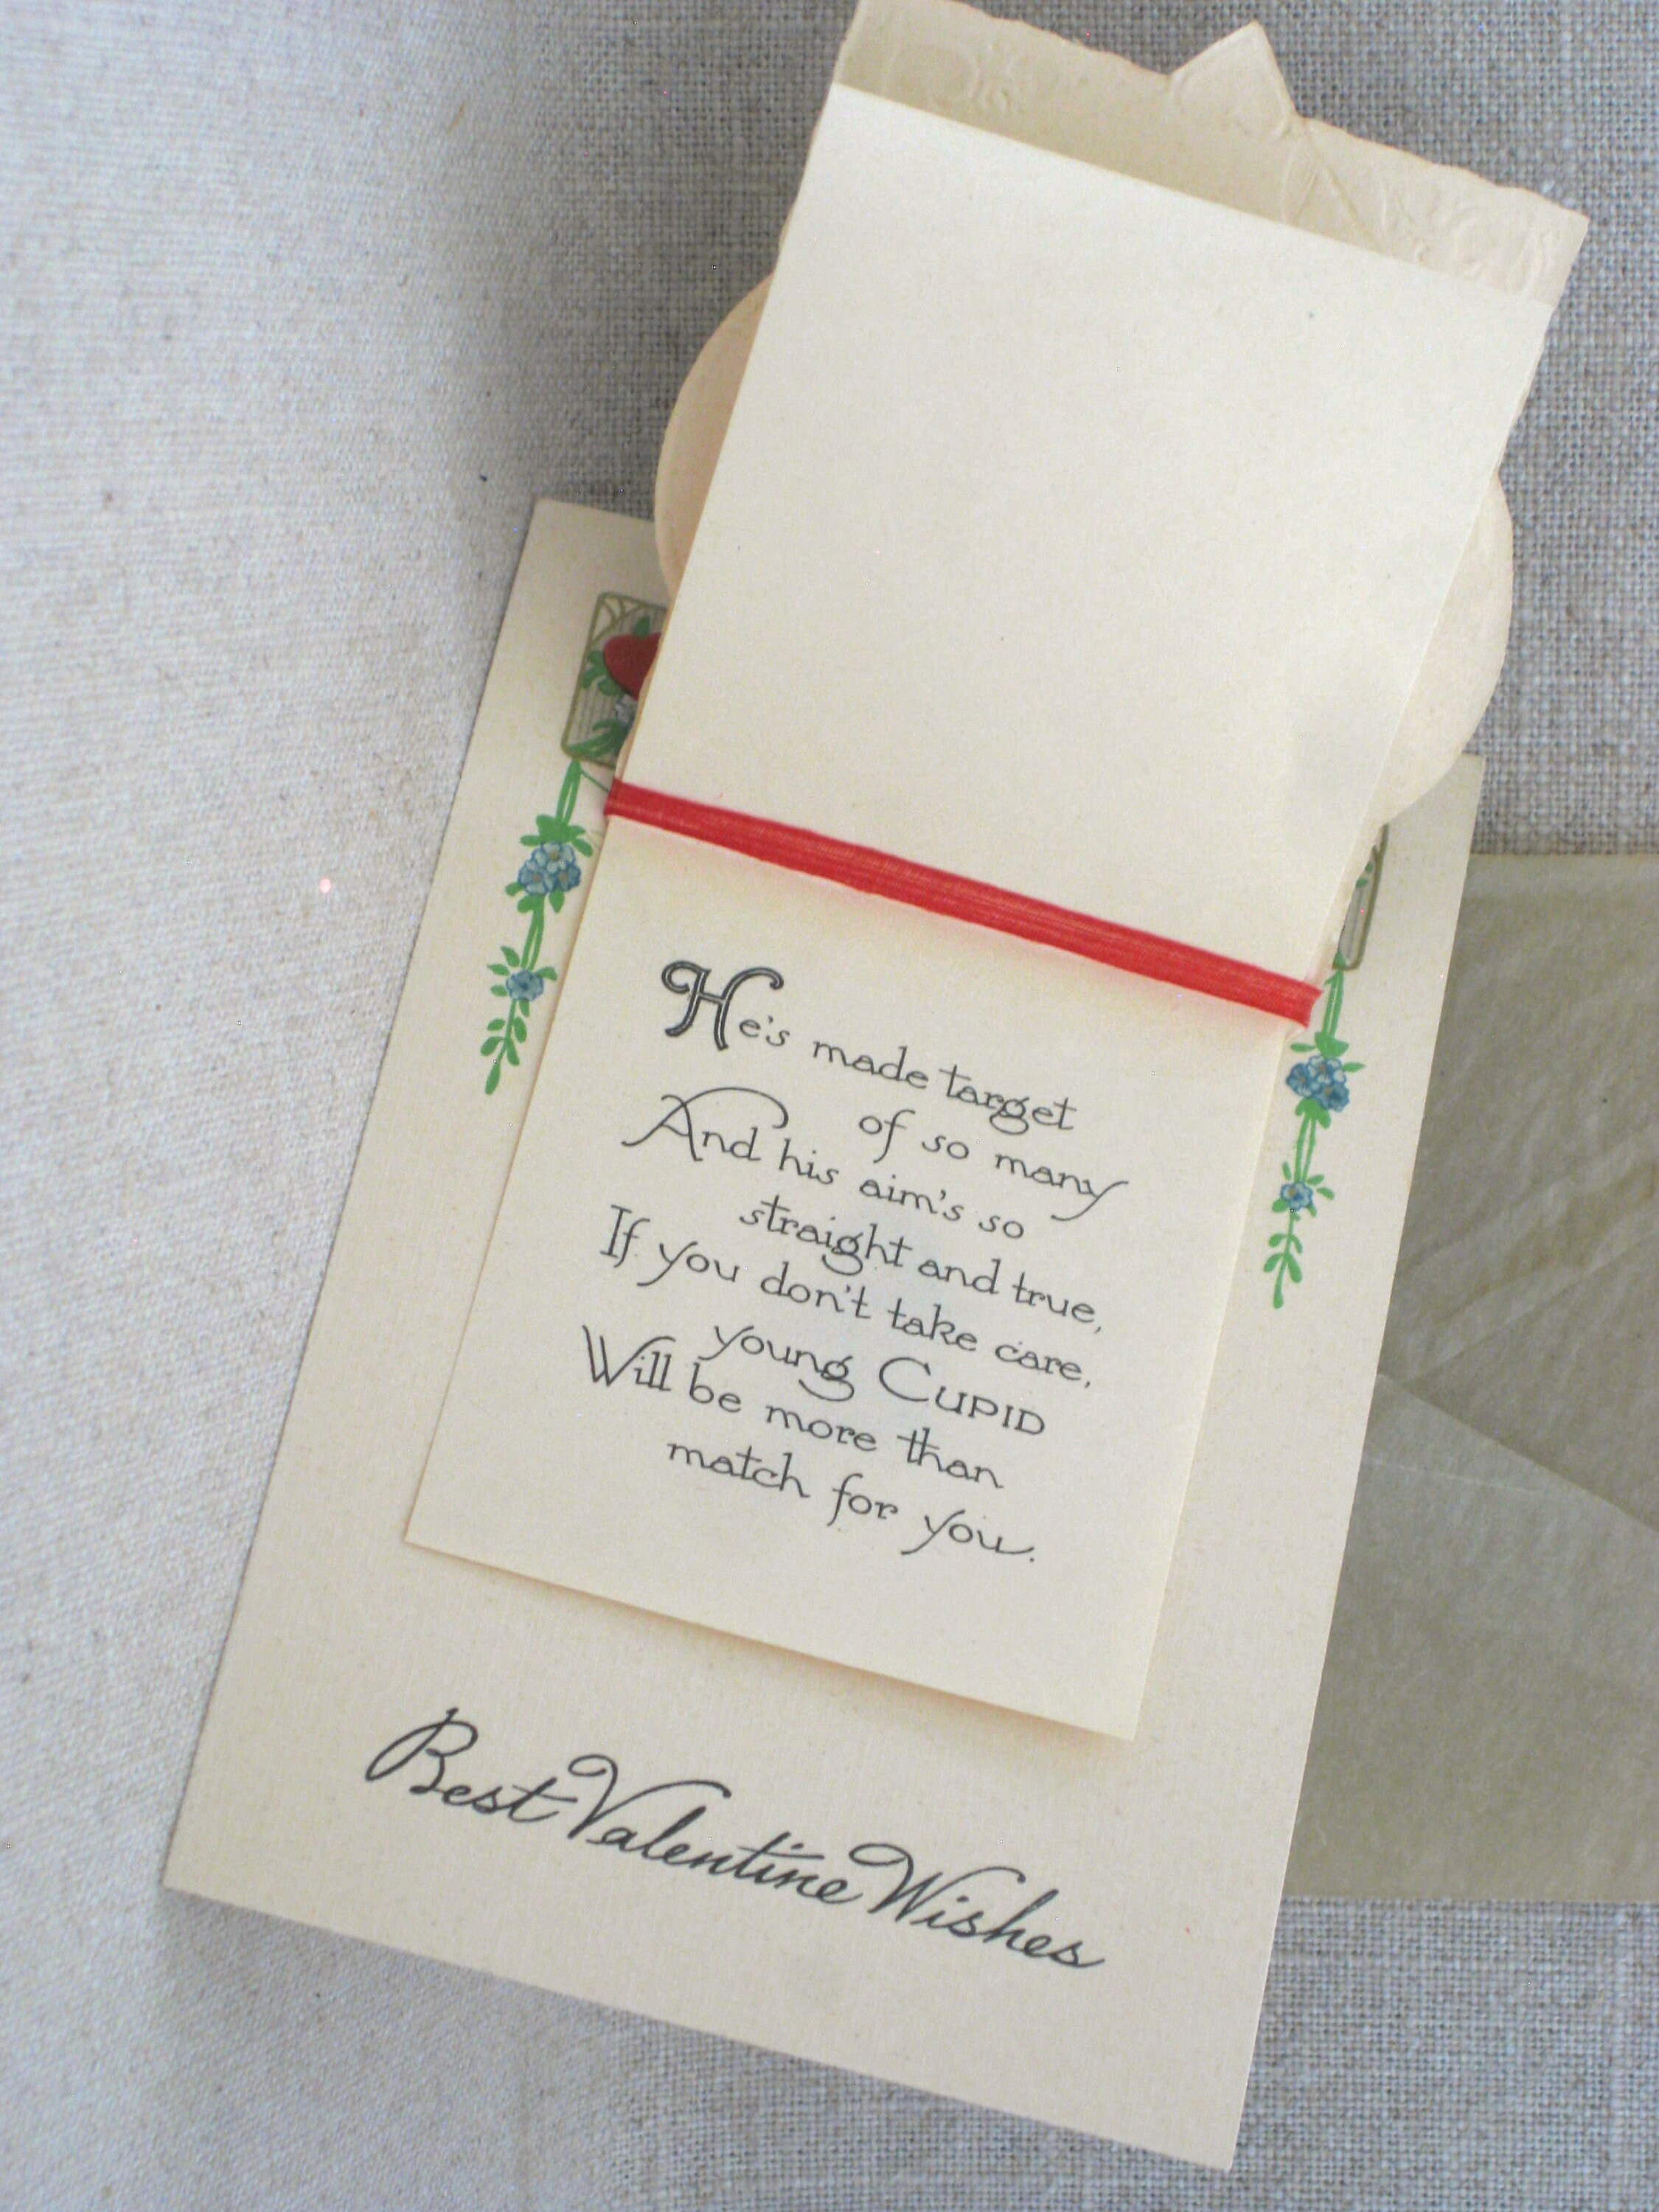 He's made target
of so many
And his aim's so
straight and true,
If you don't take care,
young CUPID
Will be more than
match for you.
Best Valentine Wishes